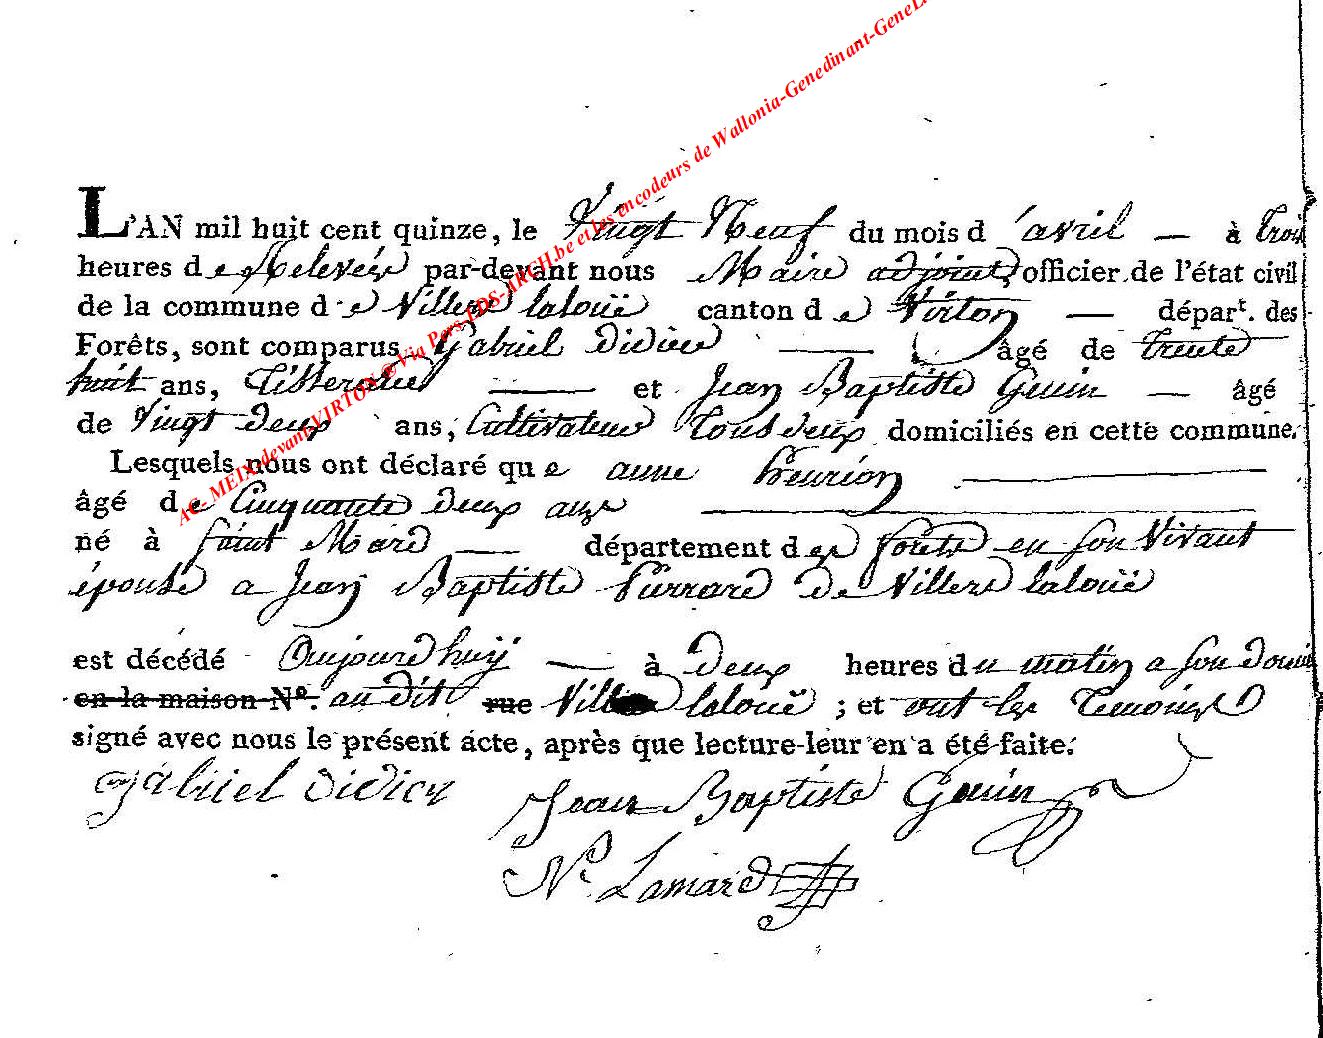 L'AN mil huit cent quinze, le Vingt Neuf du mois d'avril — à Trois
heures de Relevéé par-devant nous Maire adjoint, officier de l'état civil
de la commune de Villers laloüe canton de Virton — départ. des
Forêts, sont comparus Gabriel Didier — âgé de trente
huit ans, Tisserand — et Jean Baptiste Goüin — âgé
de Vingt deux ans, Cultivateur Tous deux domiciliés en cette commune.
Lesquels nous ont déclaré que anne —
âgé de Cinquante deux ans —
né à saint Mard — département des forêts en son Vivant
épouse a Jean Baptiste de Villers laloüe
est décédé Aujourd'huÿ — à deux heures du matin a son domi
en la maison Nº. au dit rue Villers laloüe ; et ont les Temoins
signé avec nous le présent acte, après que lecture leur en a été faite.
gabriel didier Jean Baptiste Goüin
Ns. Lamard
AC- MEIX devant VIRTON @ Via Pers-FDS-ARCH.be et les encodeurs de Wallonia-Genedinant-GeneL